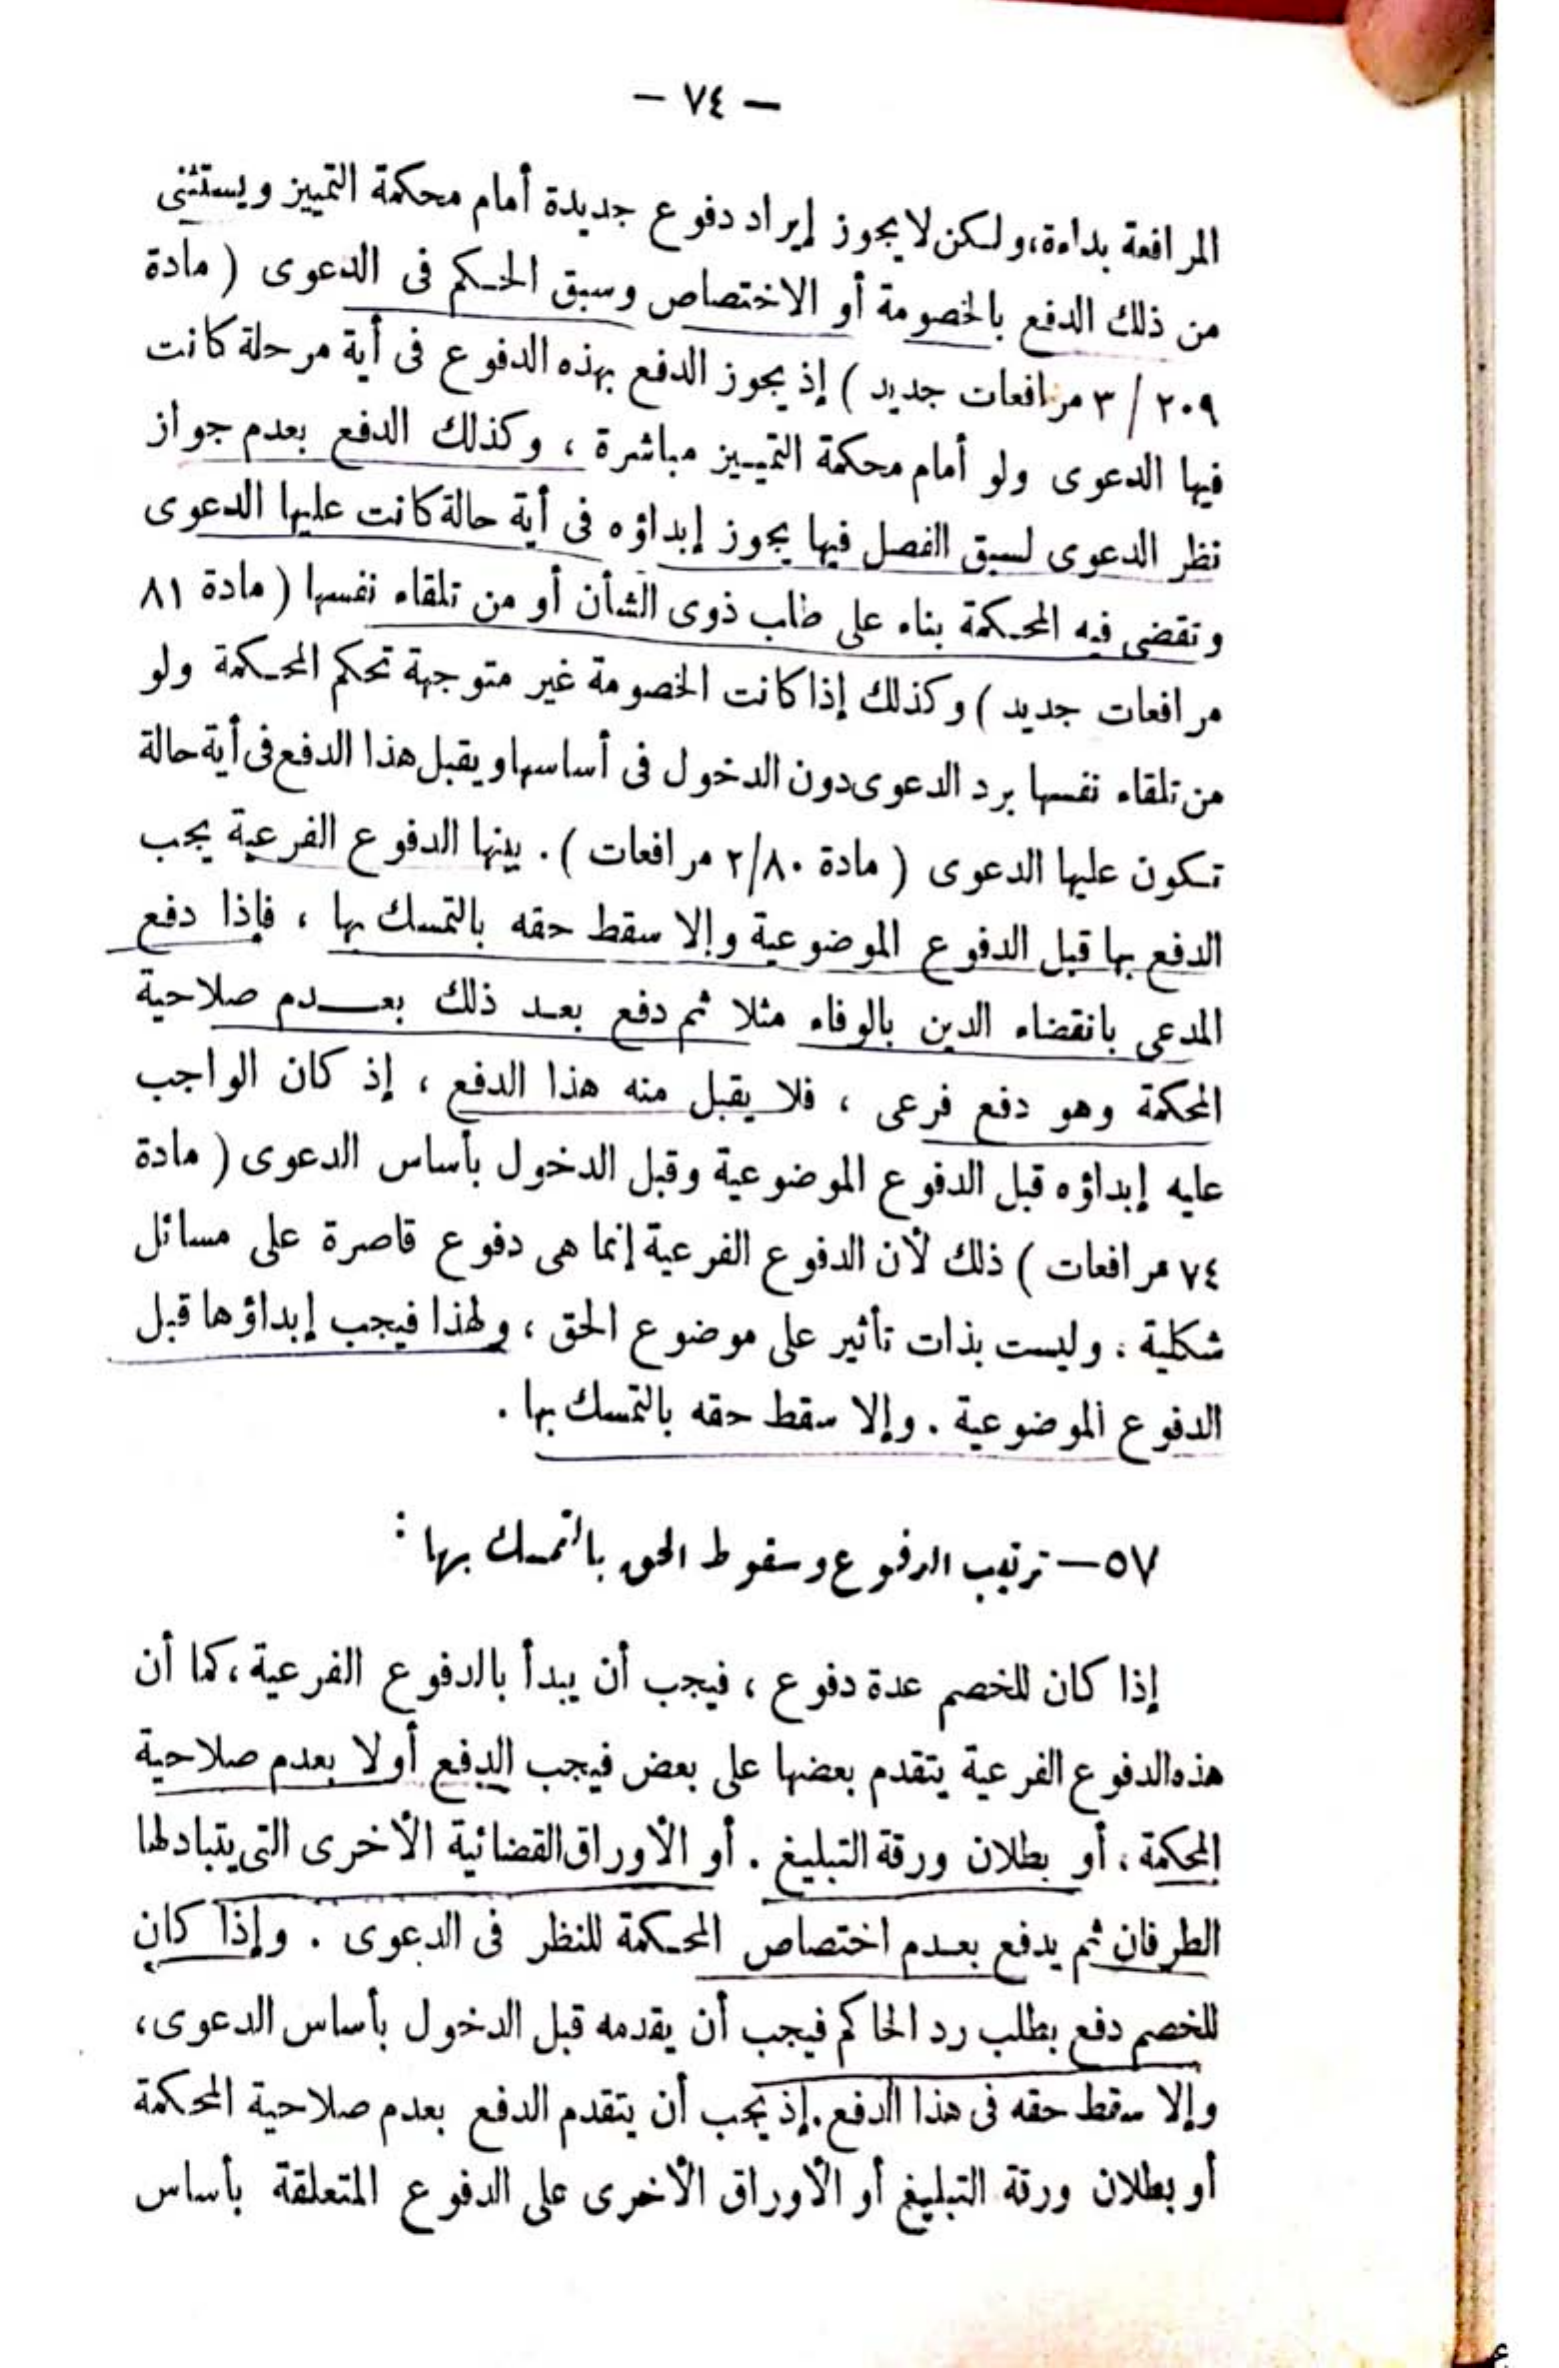 — ٧٤ —
المرافعة بداءة، ولكن لا يجوز إيراد دفوع جديدة أمام محكمة التمييز ويستثنى
من ذلك الدفع بالخصومة أو الاختصاص وسبق الحكم فى الدعوى ( مادة
٢٠٩ / ٣ مرافعات جديد ) إذ يجوز الدفع بهذه الدفوع فى أية مرحلة كانت
فيها الدعوى ولو أمام محكمة التمييز مباشرة ، وكذلك الدفع بعدم جواز
نظر الدعوى لسبق الفصل فيها يجوز إبداؤه فى أية حالة كانت عليها الدعوى
وتقضى فيه المحكمة بناء على طلب ذوى الشأن أو من تلقاء نفسها ( مادة ٨١
مرافعات جديد ) وكذلك إذا كانت الخصومة غير متوجهة تحكم المحكمة ولو
من تلقاء نفسها برد الدعوى دون الدخول فى أساسها ويقبل هذا الدفع فى أية حالة
تكون عليها الدعوى ( مادة ٢/٨٠ مرافعات ) . بينها الدفوع الفرعية يجب
الدفع بها قبل الدفوع الموضوعية وإلا سقط حقه بالتمسك بها ، فإذا دفع
المدعى بانقضاء الدين بالوفاء مثلا ثم دفع بعد ذلك بعدم صلاحية
المحكمة وهو دفع فرعى ، فلا يقبل منه هذا الدفع ، إذ كان الواجب
عليه إبداؤه قبل الدفوع الموضوعية وقبل الدخول بأساس الدعوى ( مادة
٧٤ مرافعات ) ذلك لأن الدفوع الفرعية إنما هى دفوع قاصرة على مسائل
شكلية ، وليست بذات تأثير على موضوع الحق ، ولهذا فيجب إبداؤها قبل
الدفوع الموضوعية . وإلا سقط حقه بالتمسك بها .
٥٧ — ترتيب الدفوع وسقوط الحق بالتمسك بها :
إذا كان للخصم عدة دفوع ، فيجب أن يبدأ بالدفوع الفرعية ، كما أن
هذه الدفوع الفرعية يتقدم بعضها على بعض فيجب الدفع أولا بعدم صلاحية
المحكمة ، أو بطلان ورقة التبليغ . أو الأوراق القضائية الأخرى التى يتبادلها
الطرفان ثم يدفع بعدم اختصاص المحكمة للنظر فى الدعوى . وإذا كان
للخصم دفع بطلب رد الحاكم فيجب أن يقدمه قبل الدخول بأساس الدعوى ،
وإلا سقط حقه فى هذا الدفع . إذ يجب أن يتقدم الدفع بعدم صلاحية المحكمة
أو بطلان ورقة التبليغ أو الأوراق الأخرى على الدفوع المتعلقة بأساس